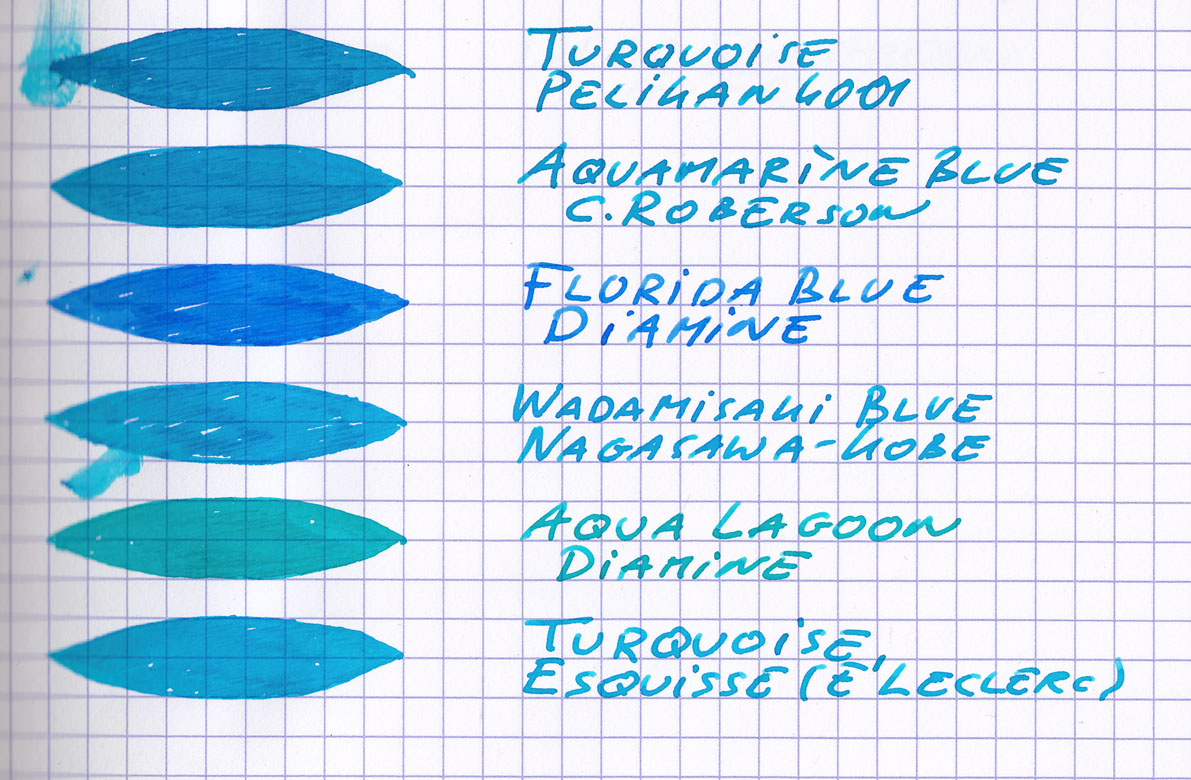 TURQUOISE
PELIKAN 4001
AQUAMARINE BLUE
C. ROBERSON
FLORIDA BLUE
DIAMINE
WADAMISAKI BLUE
NAGASAWA-KOBE
AQUA LAGOON
DIAMINE
TURQUOISE,
ESQUISSE (E'LECLERC)